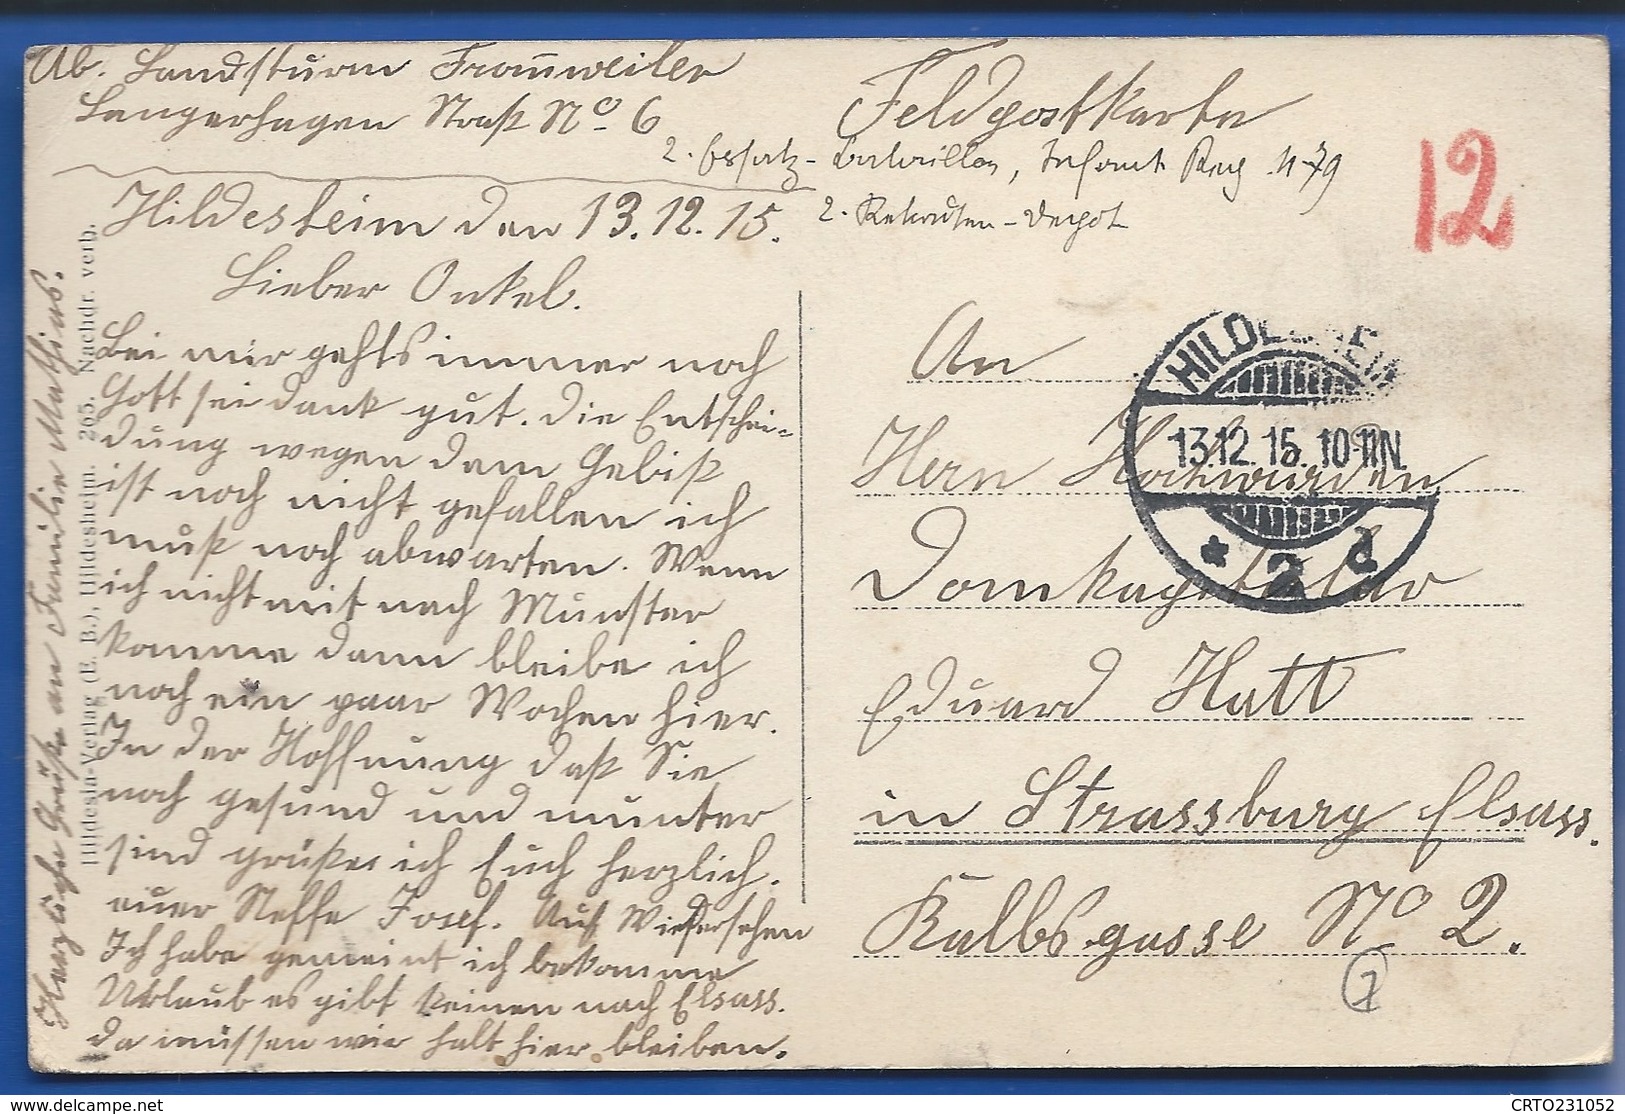 Ab. Landsturm Fromweiler
Langerhagen Straß No 6
Feldpostkarte
2. Ersatz-Bataillon, Infant Reg. N 79
2. Rekruten-Depot
12
Hildesheim den 13.12.15.
Lieber Onkel.
Bei mir gehts immer noch
Gott sei dank gut. Die Entschei-
dung wegen dem Gebiß
ist noch nicht gefallen ich
muß noch abwarten. Wenn
ich nicht mit nach Munster
komme dann bleibe ich
noch ein paar Wochen hier.
In der Hoffnung daß Sie
noch gesund und munter
sind grüßes ich Euch herzlich.
euer Neffe Josef. Auf Wiedersehen
Ich habe gemeint ich bekomme
Urlaub es gibt keinen nach Elsass.
da müssen wir halt hier bleiben.
Herzliche Grüße an Familie Mathias.
Hildesia-Verlag (E. B.), Hildesheim. 265. Nachdr. verb.
An
Hern Hochwürden
Domkapitular
Eduard Hatt
in Strassburg Elsass.
Kalbsgasse No 2.
7
HILDESHEIM
13.12.15.10-11N.
* 2 d
CRTO231052
www.delcampe.net